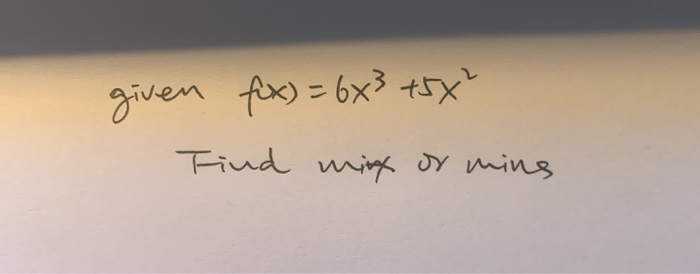 given f(x) = 6x³ + 5x²
Find mix or mins